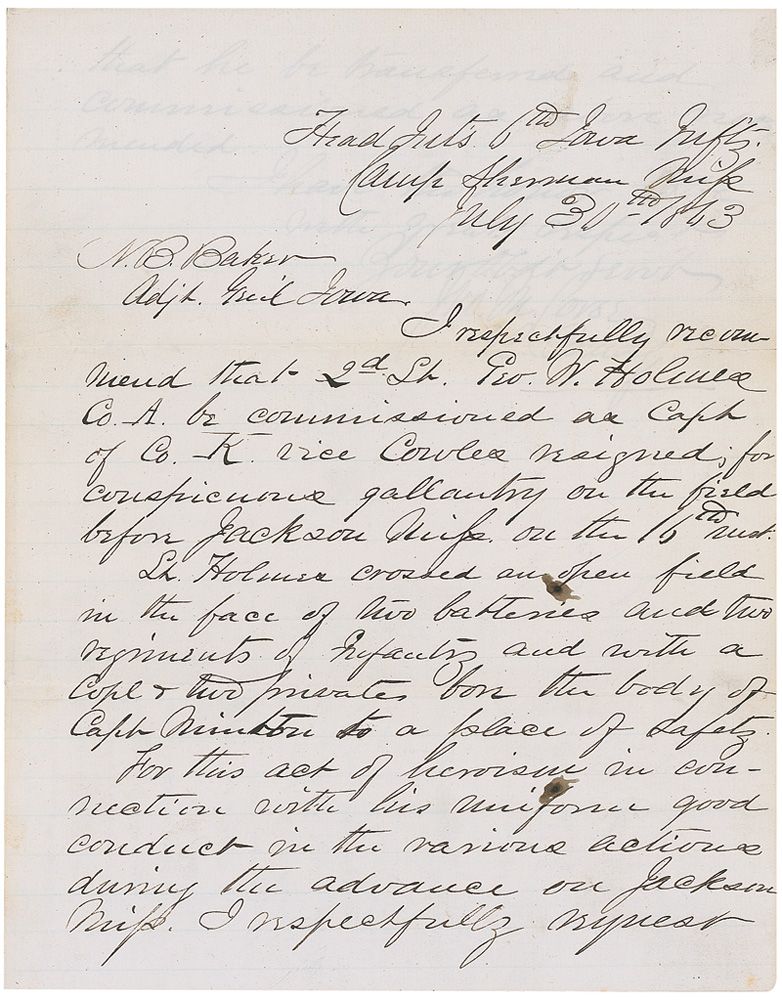 Head Qrt's 6th Iowa Infty.
Camp Sherman Miss
July 30th 1863
N. B. Baker
Adjt. Gen'l Iowa.
I respectfully recom-
mend that 2d. Lt. Geo. W. Holmes
Co. A. be commissioned as Capt
of Co. K. vice Cowles resigned; for
conspicuous gallantry on the field
before Jackson Miss. on the 16th inst.
Lt. Holmes crossed an open field
in the face of two batteries and two
regiments of Infantry and with a
Corpl & two privates bore the body of
Capt Minton to a place of safety.
For this act of heroism in con-
nection with his uniform good
conduct in the various actions
during the advance on Jackson
Miss. I respectfully request
that he be transferred and
commissioned as above recom
mended